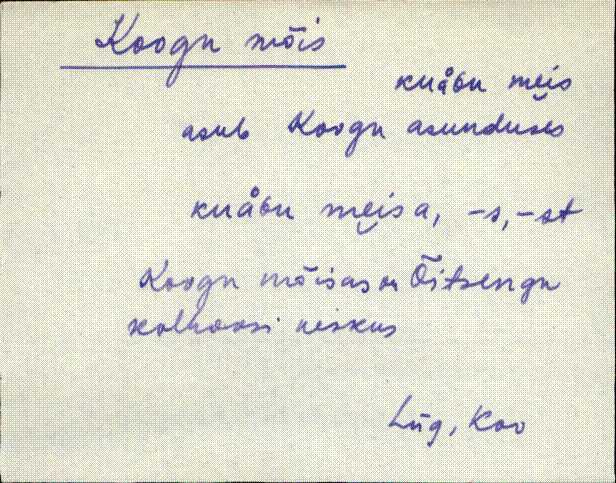 Koogu mõis
kuåʙu mei̯s
asub Koogu asunduses
kuåʙu mei̯sa, -s, -st
Koogu mõisas on Õitsengu
kolhoosi keskus
Lüg, Koo